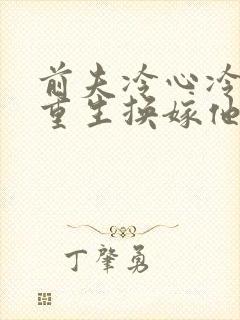 前夫冷心冷
重生换嫁他
丁肇勇